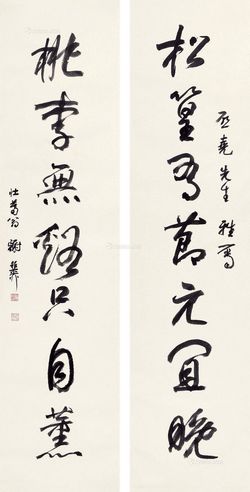 丕堯先生雅屬
松篁有節元宜晚
桃李無谿只自薰
壯暮翁謝稚柳